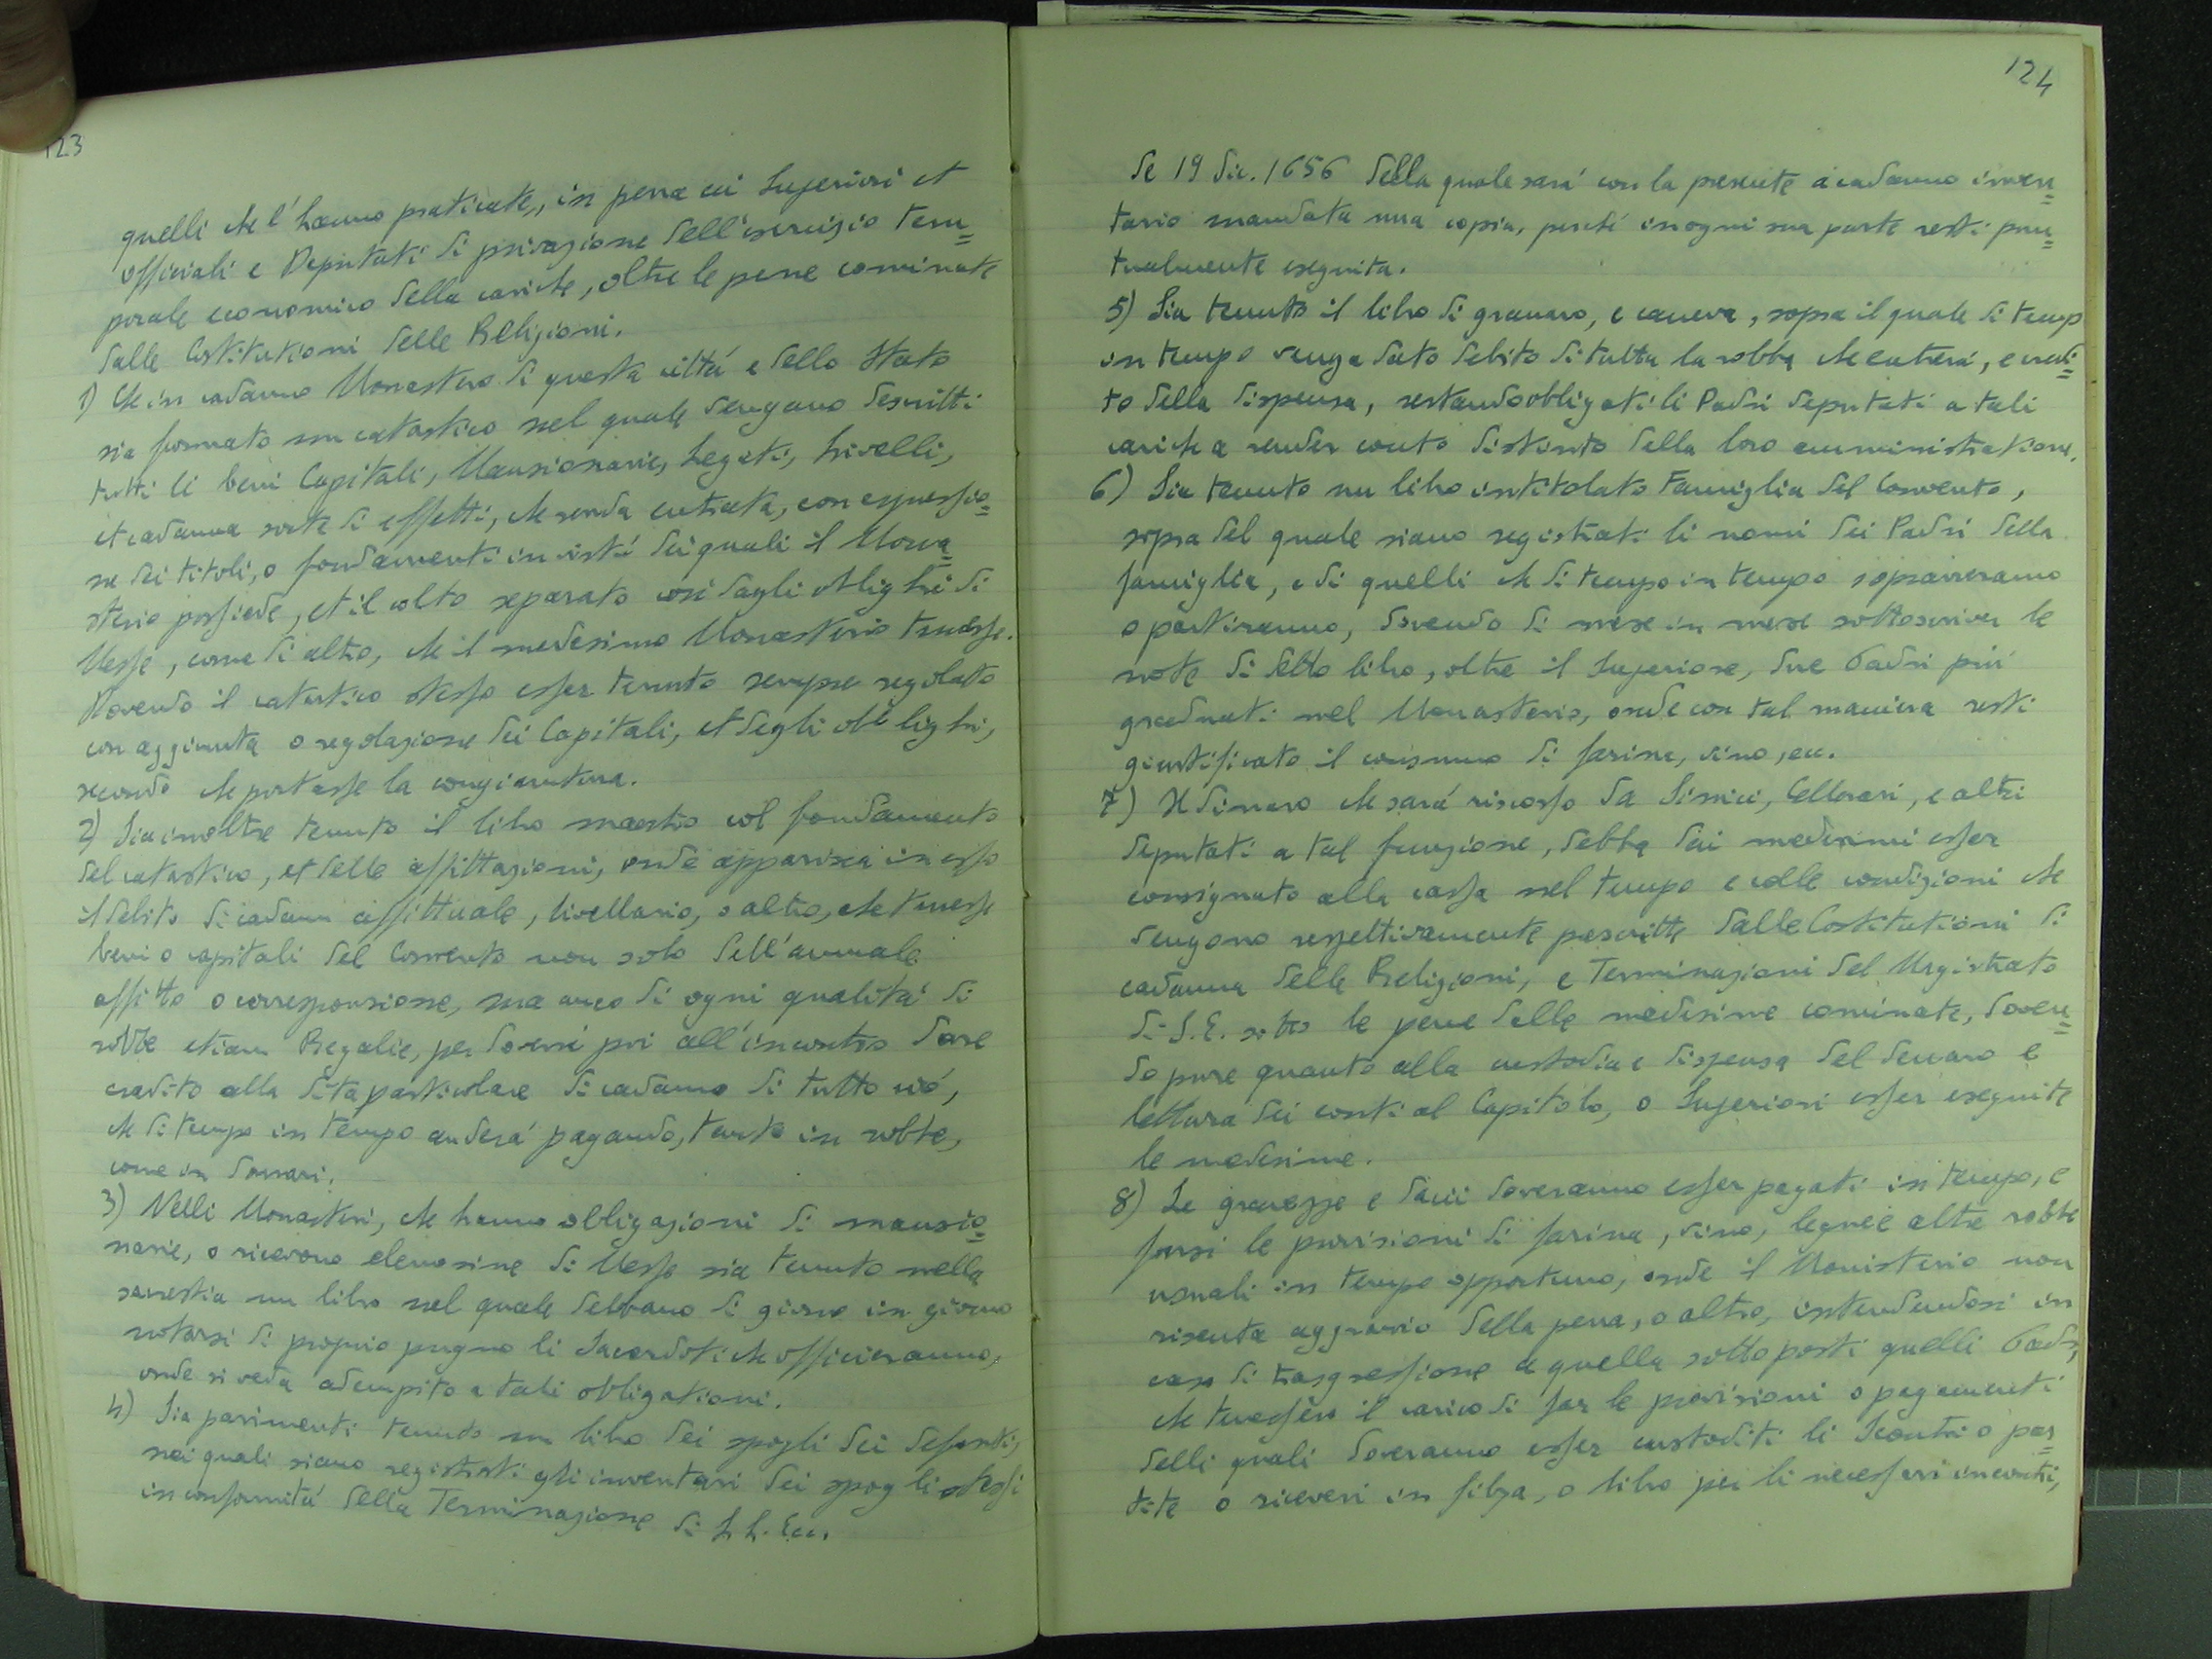 123
quelli che l'hanno praticate, in pena ai Superiori et
officiali e Deputati di privazione dell'esercizio tem=
porale economico della cariche, oltre le pene cominate
dalle Costitutioni delle Religioni.
1) Che in cadauno Monastero di questa cittá e dello Stato
sia formato un catastico nel quale vengano descritti
tutti li beni Capitali, Mansionarie, Legati, Livelli,
et cadauna sorte di effetti, che renda entrata, con espressio=
ne dei titoli, o fondamenti in virtú dei quali il Mona=
sterio possiede, et il colto separato cosi dagli oblighi di
Messe, come di altro, che il medesimo Monasterio tenesse.
Dovendo il catastico stesso esser tenuto sempre regolato
con aggiunta o regolazione dei Capitali, et degli oblighi,
secondo che portasse la congiuntura.
2) Sia inoltre tenuto il libro maestro col fondamento
del catastico, et delle affittazioni, onde apparisca in esso
il debito di cadaun affittuale, livellario, o altro, che tenesse
beni o capitali del Convento non solo dell'annuale
affitto o corresponsione, ma anco di ogni qualitá di
robbe etiam Regalie, per doversi poi all'incontro dare
credito alla dita particolare di cadauno di tutto ció,
che di tempo in tempo anderá pagando, tanto in robbe,
come in donari.
3) Nelli Monasteri, che hanno obligazioni di mansio=
narie, o ricevono elemosine di Messe sia tenuto nella
sacrestia un libro nel quale debbano di giorno in giorno
notarsi di proprio pugno li Sacerdoti che officieranno,
onde si veda adempito a tali obligationi.
4) Sia parimenti tenuto un libro dei spogli dei defonti,
nei quali siano registrati gli inventari dei spogli stessi
in conformitá della Terminazione di L.L. Ecc.
124
de 19 Dic. 1656 della quale sará con la presente á cadauno inven=
tario mandata una copia, perché in ogni sua parte resti pun=
tualmente eseguita.
5) Sia tenuto il libro di granaro, e caneva, sopra il quale di temp
in tempo venga dato debito di tutta la robba che entrerá, e credi=
to della dispensa, restando obligati li Padri deputati a tali
cariche a render conto distinto della loro amministratione.
6) Sia tenuto un libro intitolato Famiglia del Convento,
sopra del quale siano registrati li nomi dei Padri della
famiglia, e di quelli che di tempo in tempo sopraverranno
o partiranno, dovendo di mese in mese sottoscriver le
note di detto libro, oltre il Superiore, due Padri piú
graduati nel Monasterio, onde con tal maniera resti
giustificato il consumo di farine, vino, ecc.
7) Il dinaro che sará riscosso da Sinici, Cellerari, e altri
deputati a tal funzione, debba dai medesimi esser
consignato alla cassa nel tempo e colle condizioni che
vengono respettivamente prescritte dalle Costitutioni di
cadauna delle Religioni, e Terminazioni del Magistrato
di S.E. sotto le pene dalle medesime cominate, doven=
do pure quanto alla custodia e dispensa del denaro e
lettura dei conti al Capitolo, o Superiori esser eseguite
le medesime.
8) Le gravezze e dacii doveranno esser pagati in tempo, e
farsi le provisioni di farina, vino, legne e altre robbe
usuali in tempo opportuno, onde il Monisterio non
risenta aggravio della pena, o altro, intendendosi in
caso di trasgressione a quella sottoposti quelli Padri,
che tenessero il carico di far le provisioni o pagamenti
delli quali doveranno esser custoditi li Scontri o par=
tite o riceveri in filza, o libro per li necessari incontri,